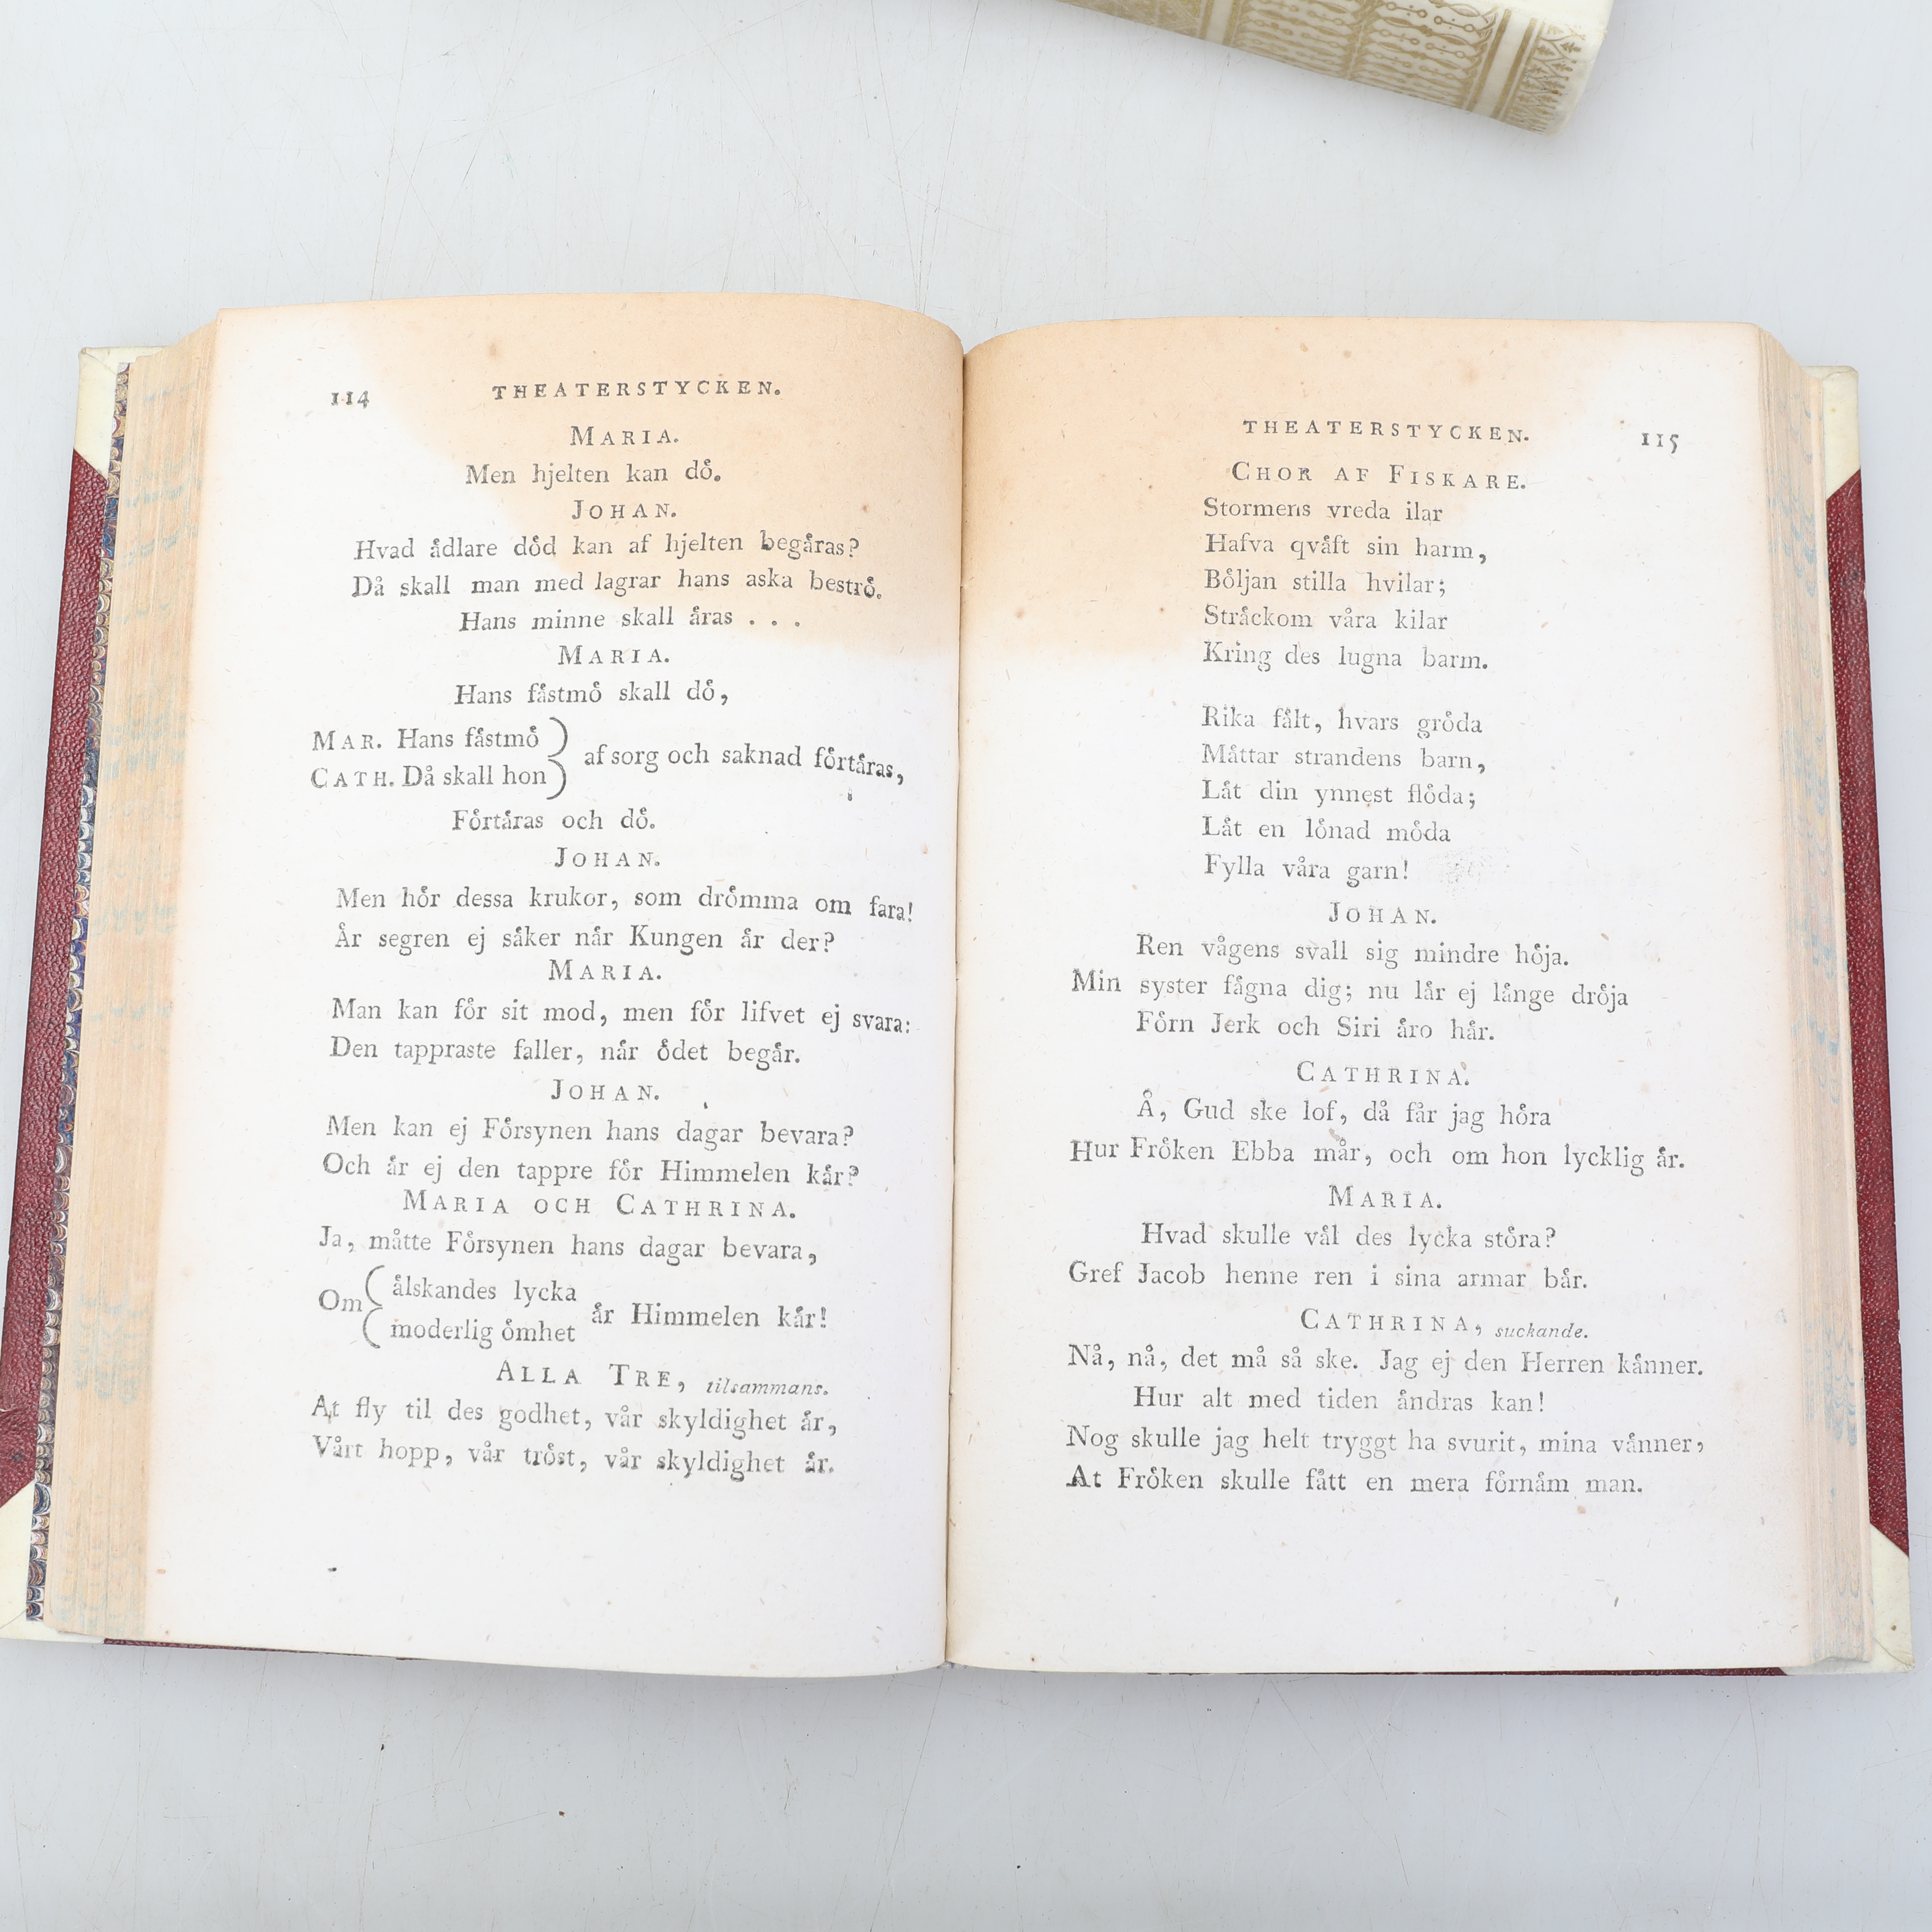 114 THEATERSTYCKEN.
MARIA.
Men hjelten kan dö.
JOHAN.
Hvad ädlare död kan af hjelten begäras?
Då skall man med lagrar hans aska beströ.
Hans minne skall äras . . .
MARIA.
Hans fästmö skall dö,
MAR. Hans fästmö
CATH. Då skall hon
af sorg och saknad förtäras,
Förtäras och dö.
JOHAN.
Men hör dessa krukor, som drömma om fara!
Är segren ej säker när Kungen är der?
MARIA.
Man kan för sit mod, men för lifvet ej svara:
Den tappraste faller, när ödet begär.
JOHAN.
Men kan ej Försynen hans dagar bevara?
Och är ej den tappre för Himmelen kär?
MARIA OCH CATHRINA.
Ja, måtte Försynen hans dagar bevara,
Om
älskandes lycka
moderlig ömhet
är Himmelen kär!
ALLA TRE, tilsammans.
At fly til des godhet, vår skyldighet är,
Vårt hopp, vår tröst, vår skyldighet är.
THEATERSTYCKEN. 115
CHOR AF FISKARE.
Stormens vreda ilar
Hafva qväft sin harm,
Böljan stilla hvilar;
Sträckom våra kilar
Kring des lugna barm.
Rika fält, hvars gröda
Mättar strandens barn,
Låt din ynnest flöda;
Låt en lönad möda
Fylla våra garn!
JOHAN.
Ren vågens svall sig mindre höja.
Min syster fägna dig; nu lär ej länge dröja
Förn Jerk och Siri äro här.
CATHRINA.
Å, Gud ske lof, då får jag höra
Hur Fröken Ebba mår, och om hon lycklig är.
MARIA.
Hvad skulle väl des lycka störa?
Gref Jacob henne ren i sina armar bär.
CATHRINA, suckande.
Nå, nå, det må så ske. Jag ej den Herren känner.
Hur alt med tiden ändras kan!
Nog skulle jag helt tryggt ha svurit, mina vänner,
At Fröken skulle fått en mera förnäm man.